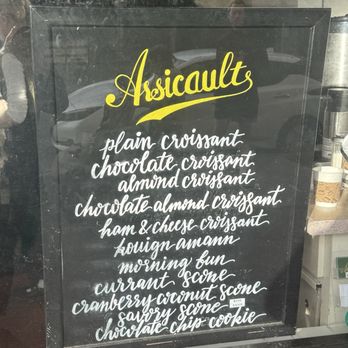 Arsicault
plain croissant
chocolate croissant
almond croissant
chocolate-almond croissant
ham & cheese croissant
kouign amann
morning bun
currant scone
cranberry coconut scone
savory scone
chocolate chip cookie